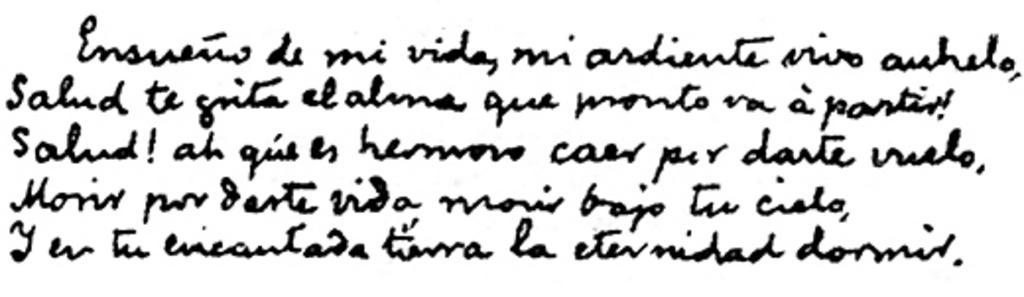 Ensueño de mi vida, mi ardiente vivo anhelo,
Salud te grita el alma que pronto va à partir!
Salud! ah que es hermoso caer por darte vuelo,
Morir por darte vida, morir bajo tu cielo,
Y en tu encantada tierra la eternidad dormir.